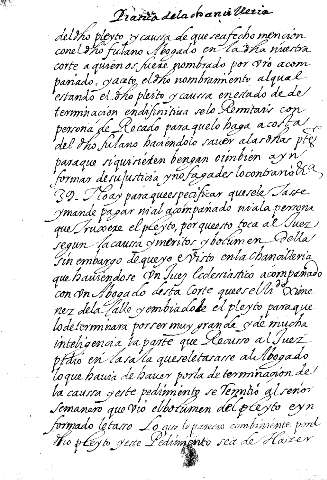 Practica de la chancilleria
del dho pleyto y causa de que se a fecho mencion
con el dho fulano Abogado en la dha nuestra
corte a quien os fuere nombrado por vro acom
pañado, y acepto el dho nombramiento al qual
estando el dho pleito y causa en estado de de
terminacion en difinitiva se lo Remitais con
persona de Recado para que lo haga a costa
del dho fulano haciendolo saver a las dhas ptes
para que si quisieren bengan o imbien a yn
formar de su justicia y no fagades lo contrario
39. No ay para que especificar que se le tase
y mande pagar ni al acompañado ni a la persona
que truxere el pleyto, por que esto toca al Juez
segun la causa y meritos y botumen della
sin embargo de que yo e visto en la chancilleria
que haviendose un Juez Eclesiastico acompañado
con un Abogado desta Corte que es el Ldo Xime
nez de la Calle y embiadole el pleyto para que
lo determinara por ser muy grande y de mucha
inteligencia la parte que Recuso al Juez
pidio en la sala que se le tasasse al Abogado
lo que havia de haver por la determinacion de
la causa y este pedimiento se Remitio al señor
Semanero que vio el botumen del pleyto e yn
formado le tasso Lo que le parecio combiniente por el
dho pleyto y este Pedimento sea de Hazer